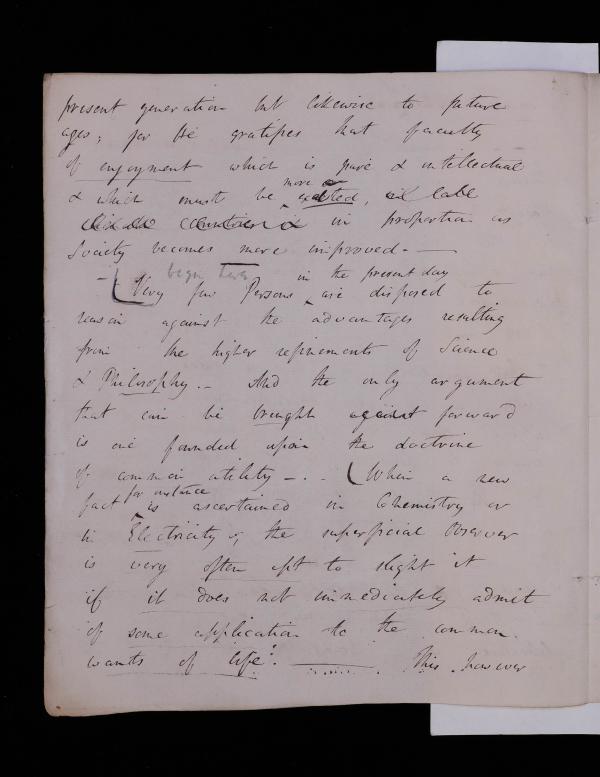 present generation but likewise to future
ages; for he gratifies that faculty
of enjoyment which is pure & intellectual
more
& which must be exalted, in
in proportion as
Society becomes more improved. —
begin here in the present day
Very few Persons ^ are disposed to
reason against the advantages resulting
from the higher refinements of Science
& Philosophy. — And the only argument
that can be brought against forward
is one founded upon the doctrine
of common utility — . . ( When a new
for instance
fact ^ is ascertained in Chemistry or
in Electricity, the superficial Observer
is very often apt to slight it
if it does not immediately admit
of some application to the common
wants of life". ——— This however